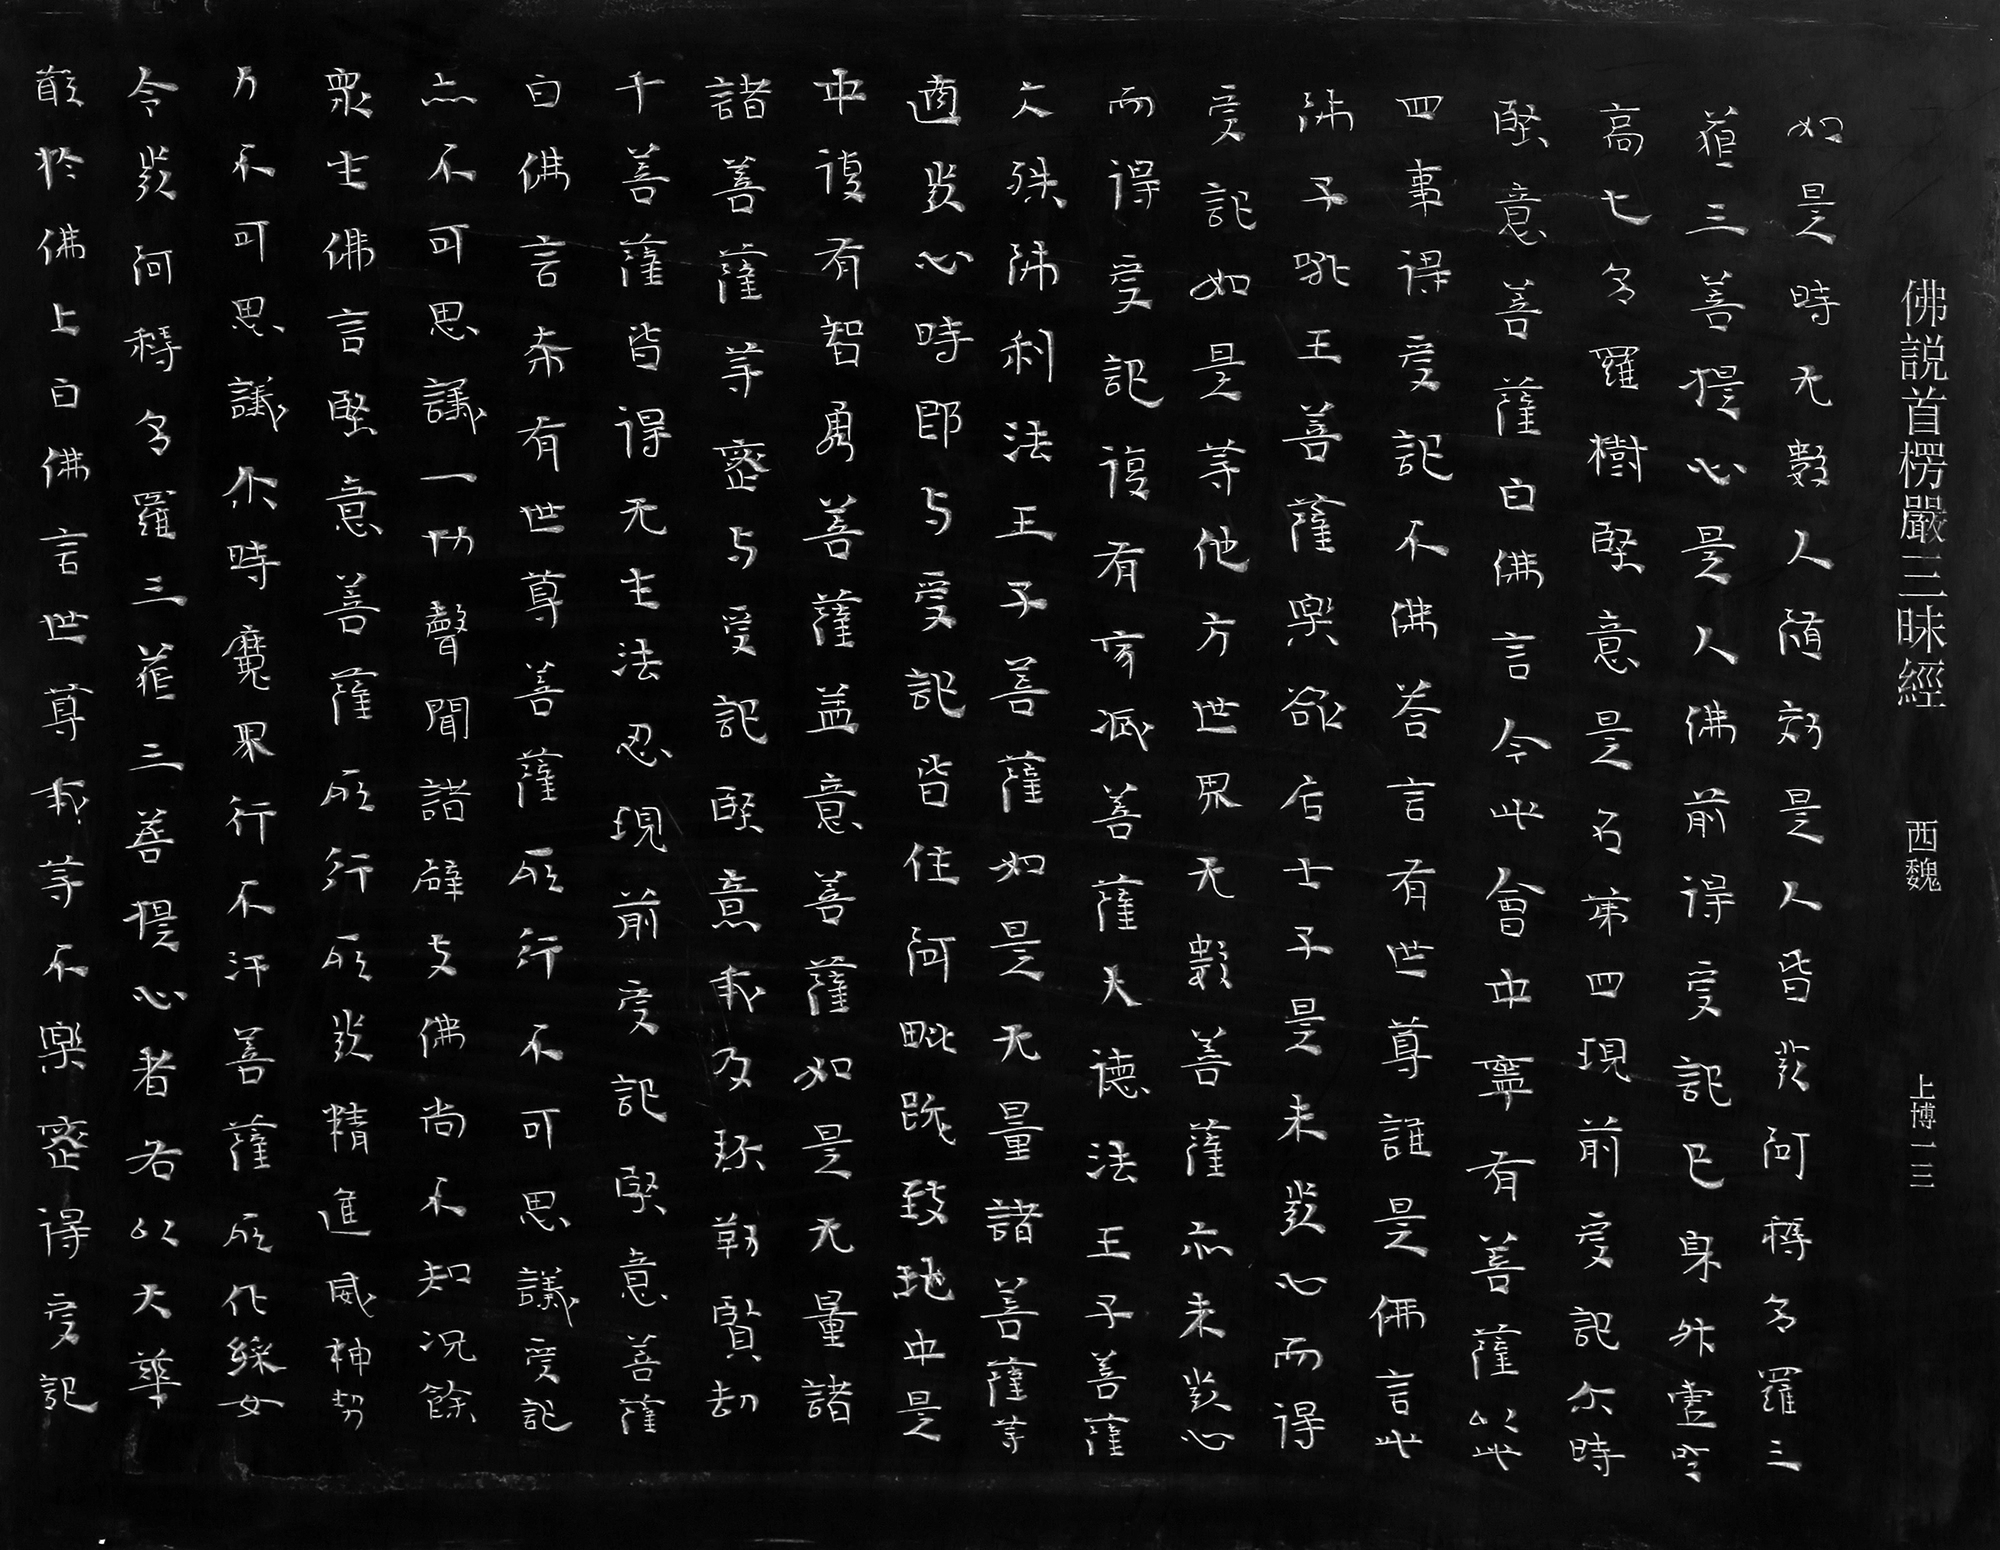 佛説首楞嚴三昧經 西魏 上博一三
如是時无數人随効是人皆發阿耨多羅三
藐三菩提心是人佛前得受記已身升虚空
高七多羅樹堅意是名第四現前受記尒時
堅意菩薩白佛言今此會中寧有菩薩以此
四事得受記不佛荅言有世尊誰是佛言此
師子吼王菩薩樂欲居士子是未發心而得
受記如是等他方世界无數菩薩亦未發心
而得受記復有寂滅菩薩大德法王子菩薩
文殊師利法王子菩薩如是无量諸菩薩等
適發心時即与受記皆住阿毗跋致地中是
中復有智勇菩薩益意菩薩如是无量諸
諸菩薩等密与受記堅意我及弥勒賢劫
千菩薩皆得无生法忍現前受記堅意菩薩
白佛言希有世尊菩薩所行不可思議受記
亦不可思議一切聲聞諸辟支佛尚不知况餘
衆生佛言堅意菩薩所行所發精進威神勢
力不可思議尒時魔界行不汙菩薩所化綵女
令發阿耨多羅三藐三菩提心者各以天華
散於佛上白佛言世尊我等不樂密得受記